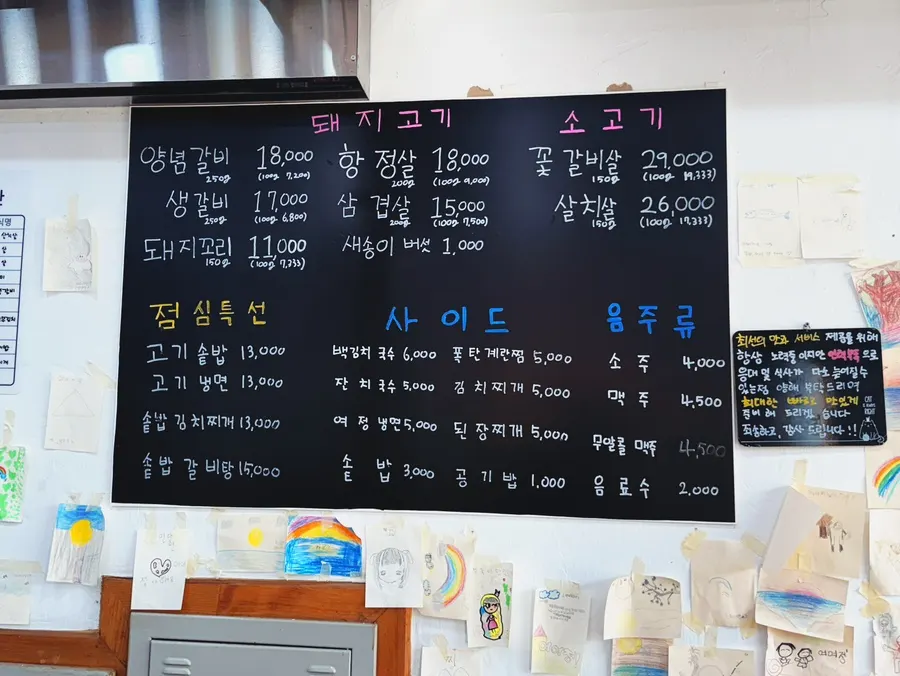 돼지고기
양념갈비 250g 18,000 (100g 7,200)
생갈비 250g 17,000 (100g 6,800)
돼지꼬리 150g 11,000 (100g 7,333)
항정살 200g 18,000 (100g 9,000)
삼겹살 200g 15,000 (100g 7,500)
새송이 버섯 1,000
소고기
꽃갈비살 150g 29,000 (100g 19,333)
살치살 150g 26,000 (100g 17,333)
점심특선
고기 솥밥 13,000
고기 냉면 13,000
솥밥 김치찌개 13,000
솥밥 갈비탕 15,000
사이드
백김치 국수 6,000
잔치국수 5,000
여정 냉면 5,000
솥밥 3,000
폭탄계란찜 5,000
김치찌개 5,000
된장찌개 5,000
공기밥 1,000
음주류
소주 4,000
맥주 4,500
무알콜 맥주 4,500
음료수 2,000
최선의 맛과 서비스 제공을 위해
항상 노력중 이지만 인력부족으로
응대 및 식사가 다소 늦어질수
있는점 양해 부탁드리며
최대한 빠르고 맛있게
준비해 드리겠습니다
죄송하고, 감사드립니다!!